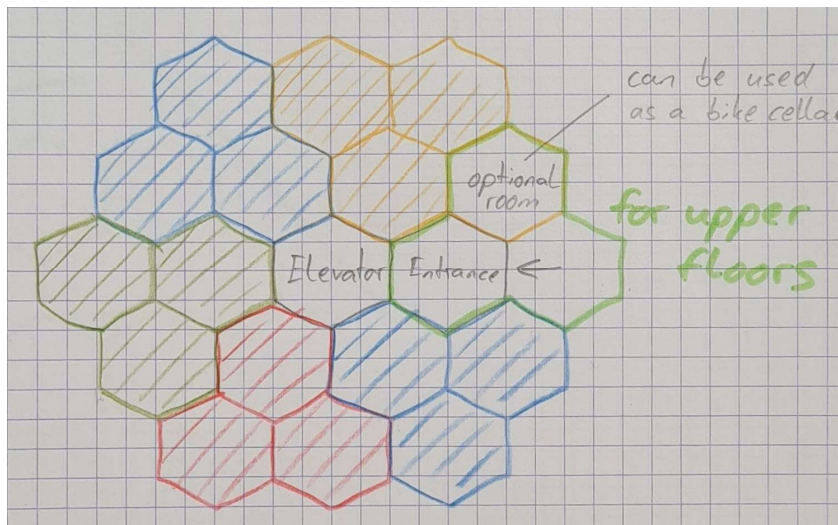 can be used
as a bike cella
optional
room
for upper
floors
Elevator
Entrance